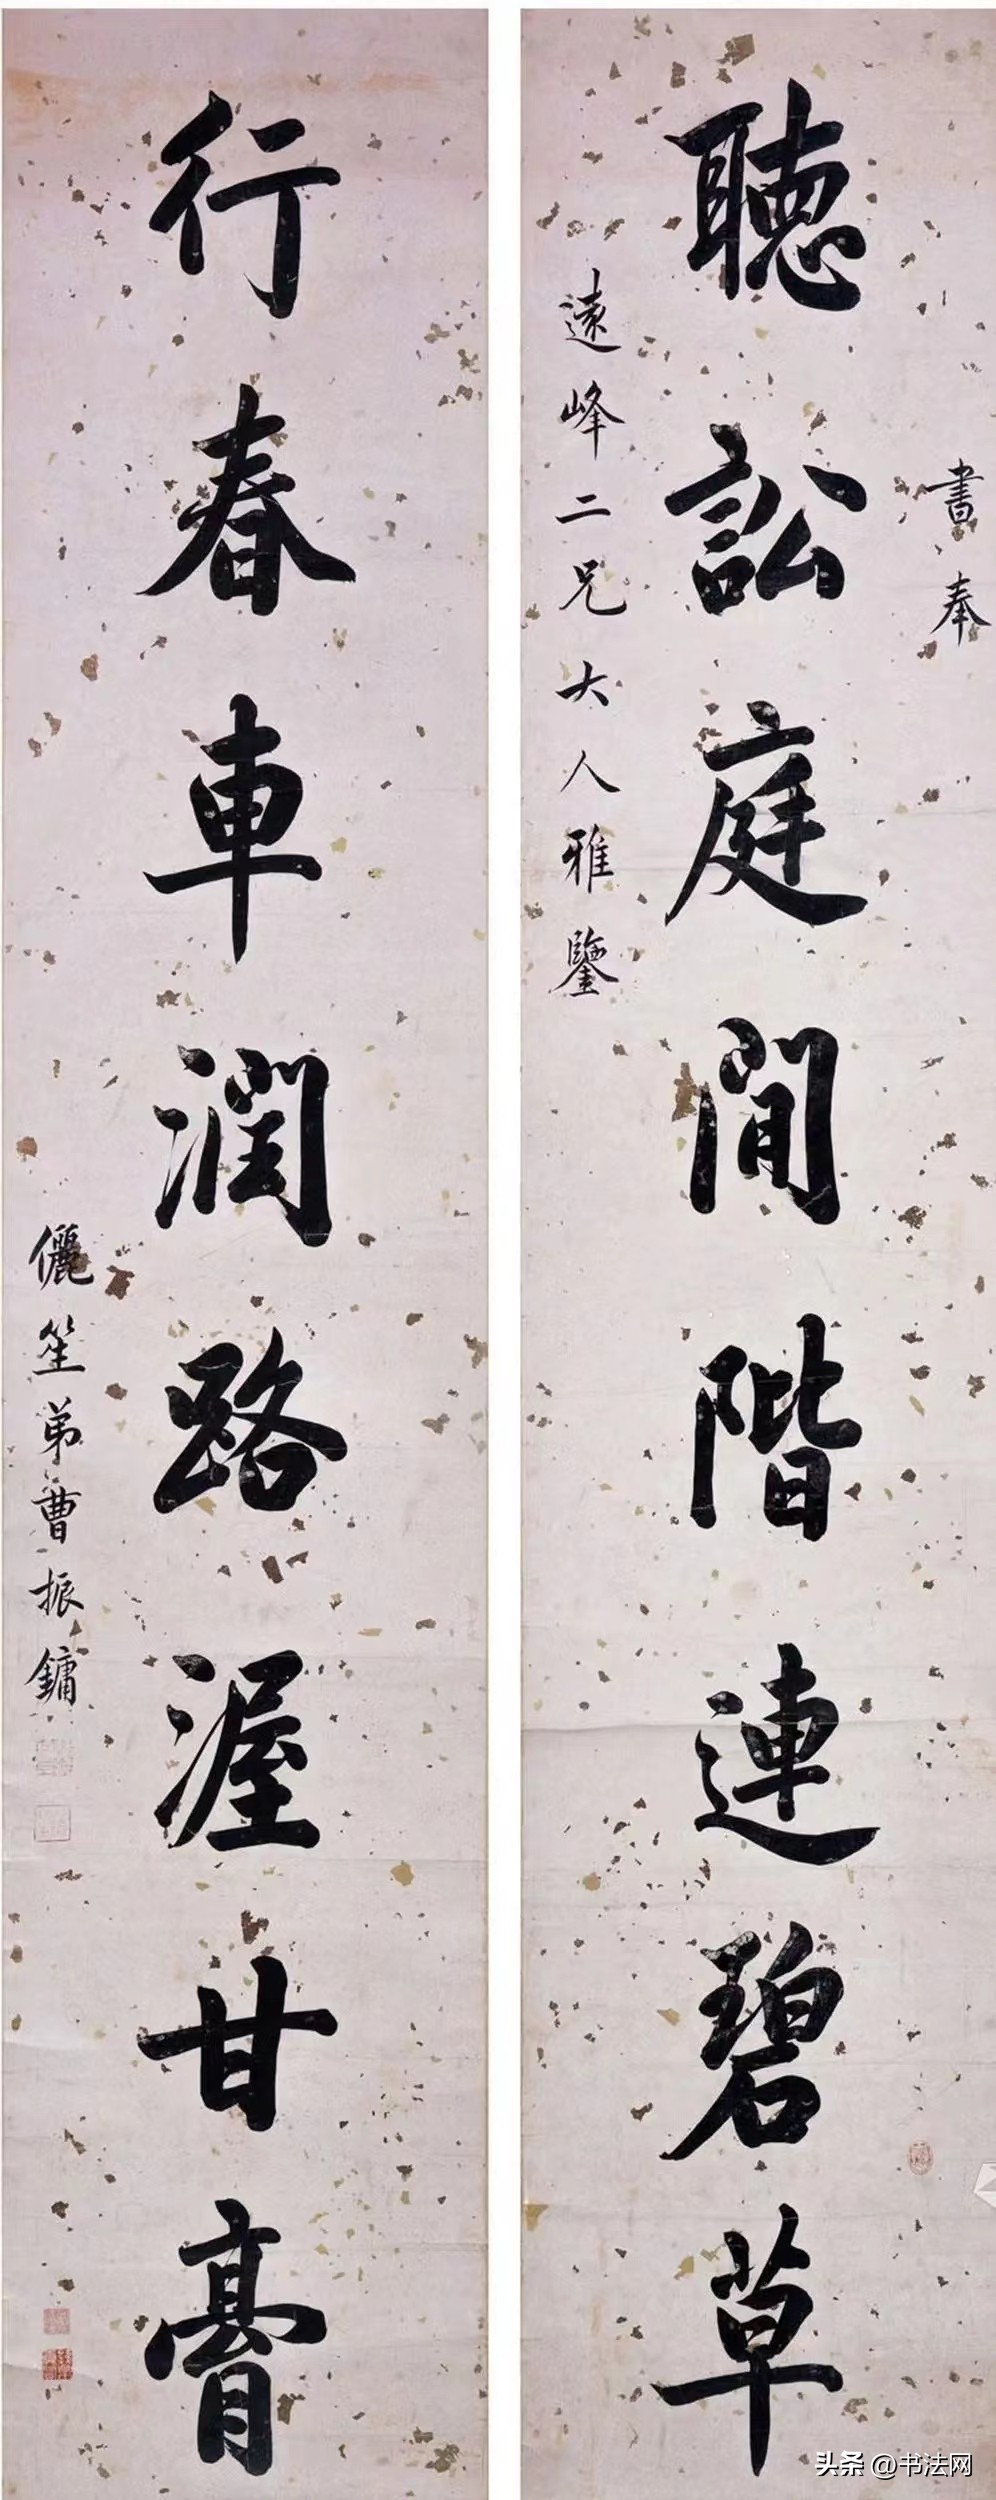 書奉
聽訟庭閒階連碧草
遠峰二兄大人雅鑒
行春車潤路渥甘膏
儷笙弟曹振鏞
头条 @书法网